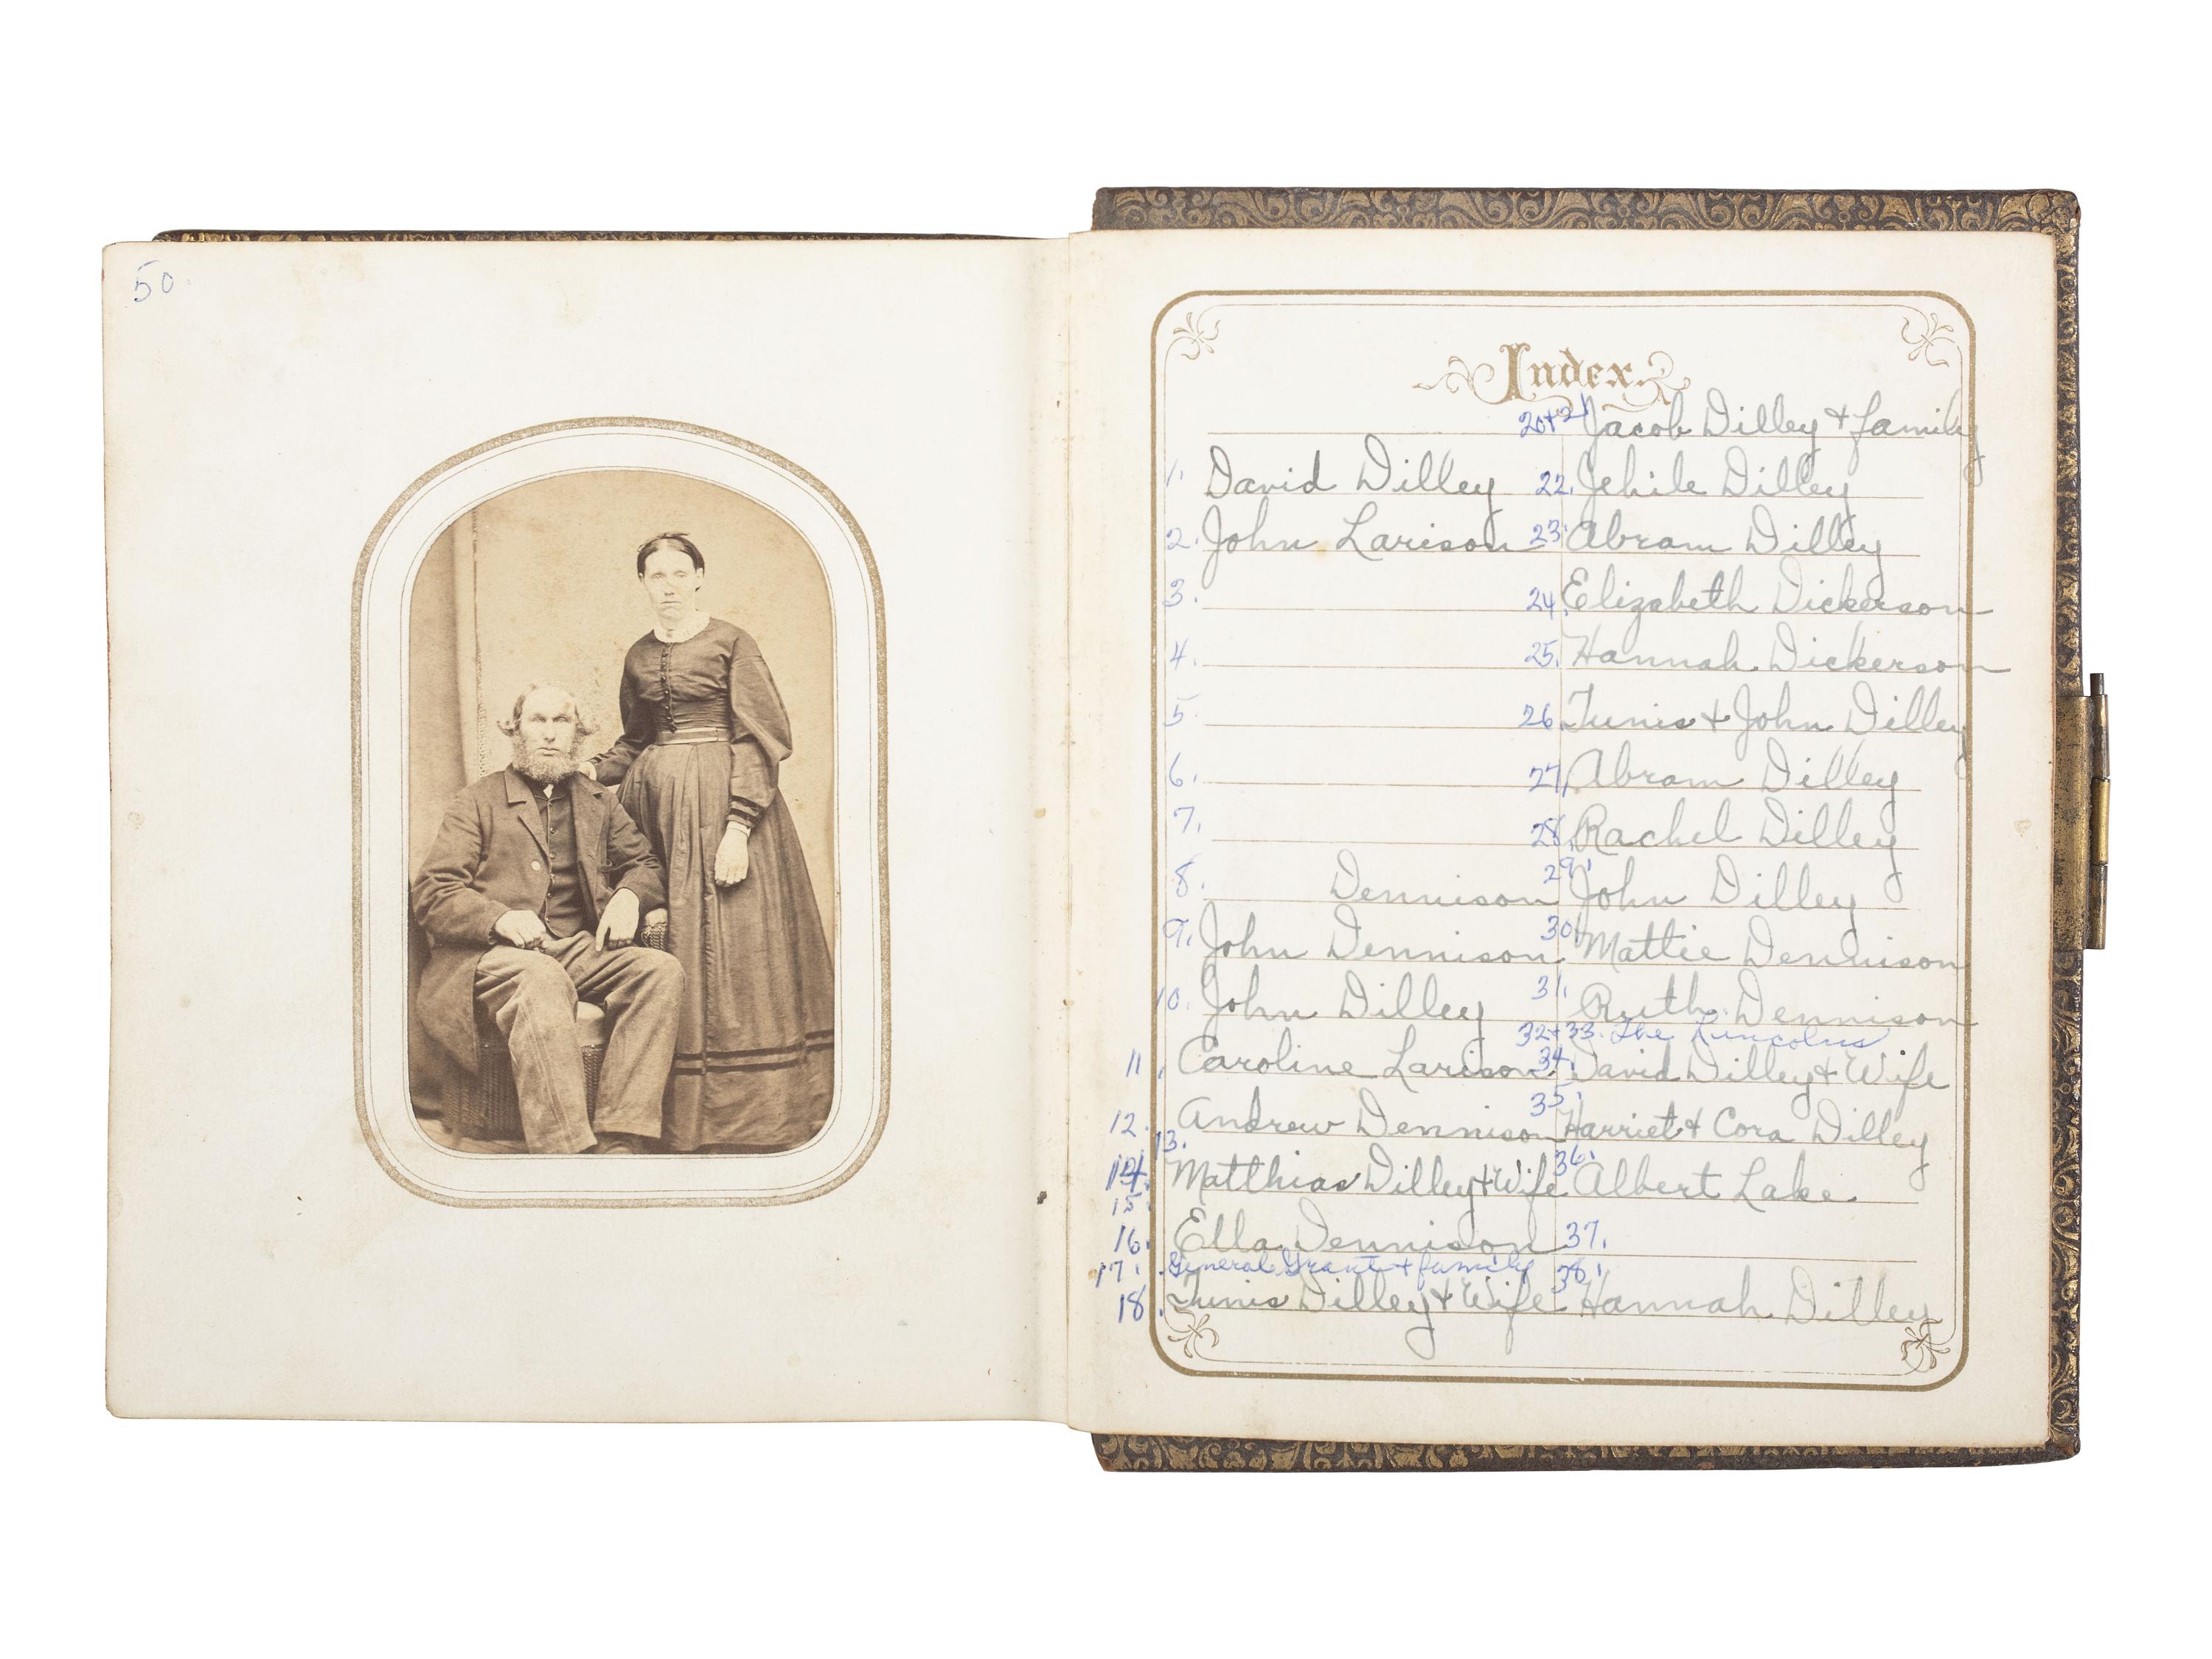 50
Index.
20+21 Jacob Dilley + family
1. David Dilley 22. Jehile Dilley
2. John Larison 23. Abram Dilley
3. 24. Elizabeth Dickerson
4. 25. Hannah Dickerson
5. 26 Tunis + John Dilley
6. 27. Abram Dilley
7. 28. Rachel Dilley
8. Dennison 29. John Dilley
9. John Dennison 30. Mattie Dennison
10. John Dilley 31. Ruth Dennison
32+33. The Lincolns
11. Caroline Larison 34. David Dilley + Wife
12. Andrew Dennison 35. Harriet + Cora Dilley
13.
14. Matthias Dilley + Wife 36. Albert Lake
15.
16. Ella Dennison 37.
17. General Grant + family 38.
18. Tunis Dilley + Wife Hannah Dilley